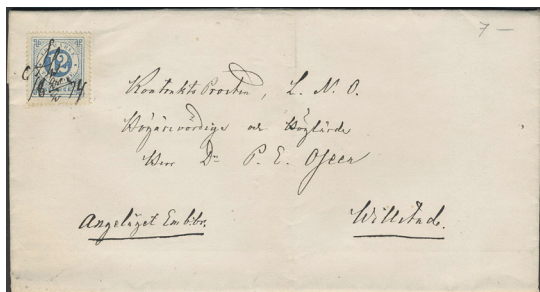 7 –
12
16 74
Kontrakts Prosten, L. N. O.
Högärevördige och Höglärde
Herr Dr P. E. Oseen
Angeläget Embtbr.
Willstad.